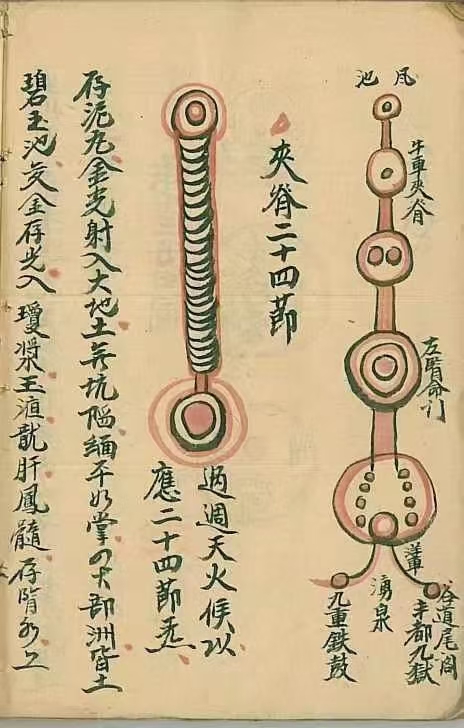 凬池
牛車夾脊
左腎命门
湧泉
谷道尾閭
丰都九獄
九重鉄鼓
夾脊二十四節
週天火候以
應二十四節炁
存泥丸金光射入大地土無坑陷緬平如掌四大部洲皆土
碧玉池変金存光入 瓊漿玉液龍肝鳳髓 存